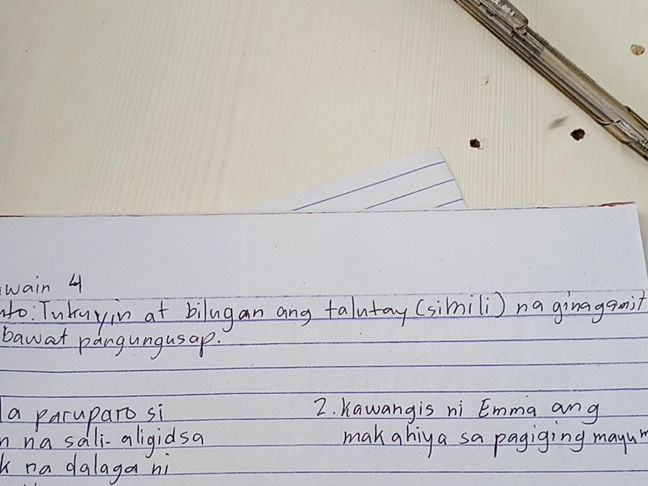 wain 4
nto: Tukuyin at bilugan ang talutay (simili) na ginagamit
bawat pangungusap.
la paruparo si
n na sali-aligidsa
k na dalaga ni
2. kawangis ni Emma ang
makahiya sa pagiging mayum